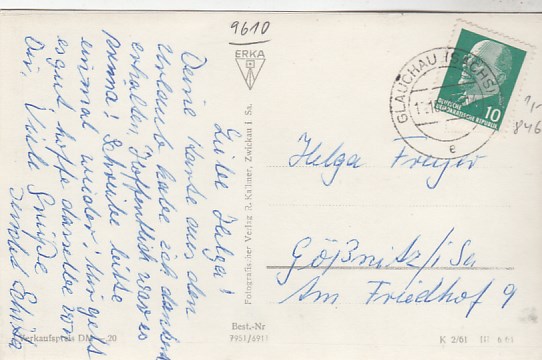 9610
ERKA
GLAUCHAU (SACHS)
e
DEUTSCHE
DEMOKRATISCHE REPUBLIK
10
846
Liebe Helga!
Deine Karte aus den
Urlaub habe ich dankend
erhalten, Hoffentlich war es
prima! Schreibe bitte
einmal wieder! Mir geht
es gut hoffe dasselbe von
Dir, Viele Grüße
Helga Freyer
Gößnitz/i Sa
Am Friedhof 9
Fotografischer Verlag R. Kallmer, Zwickau i Sa.
Verkaufspreis DM -.20
Best.-Nr
7951/6911
K 2/61 III 6 61